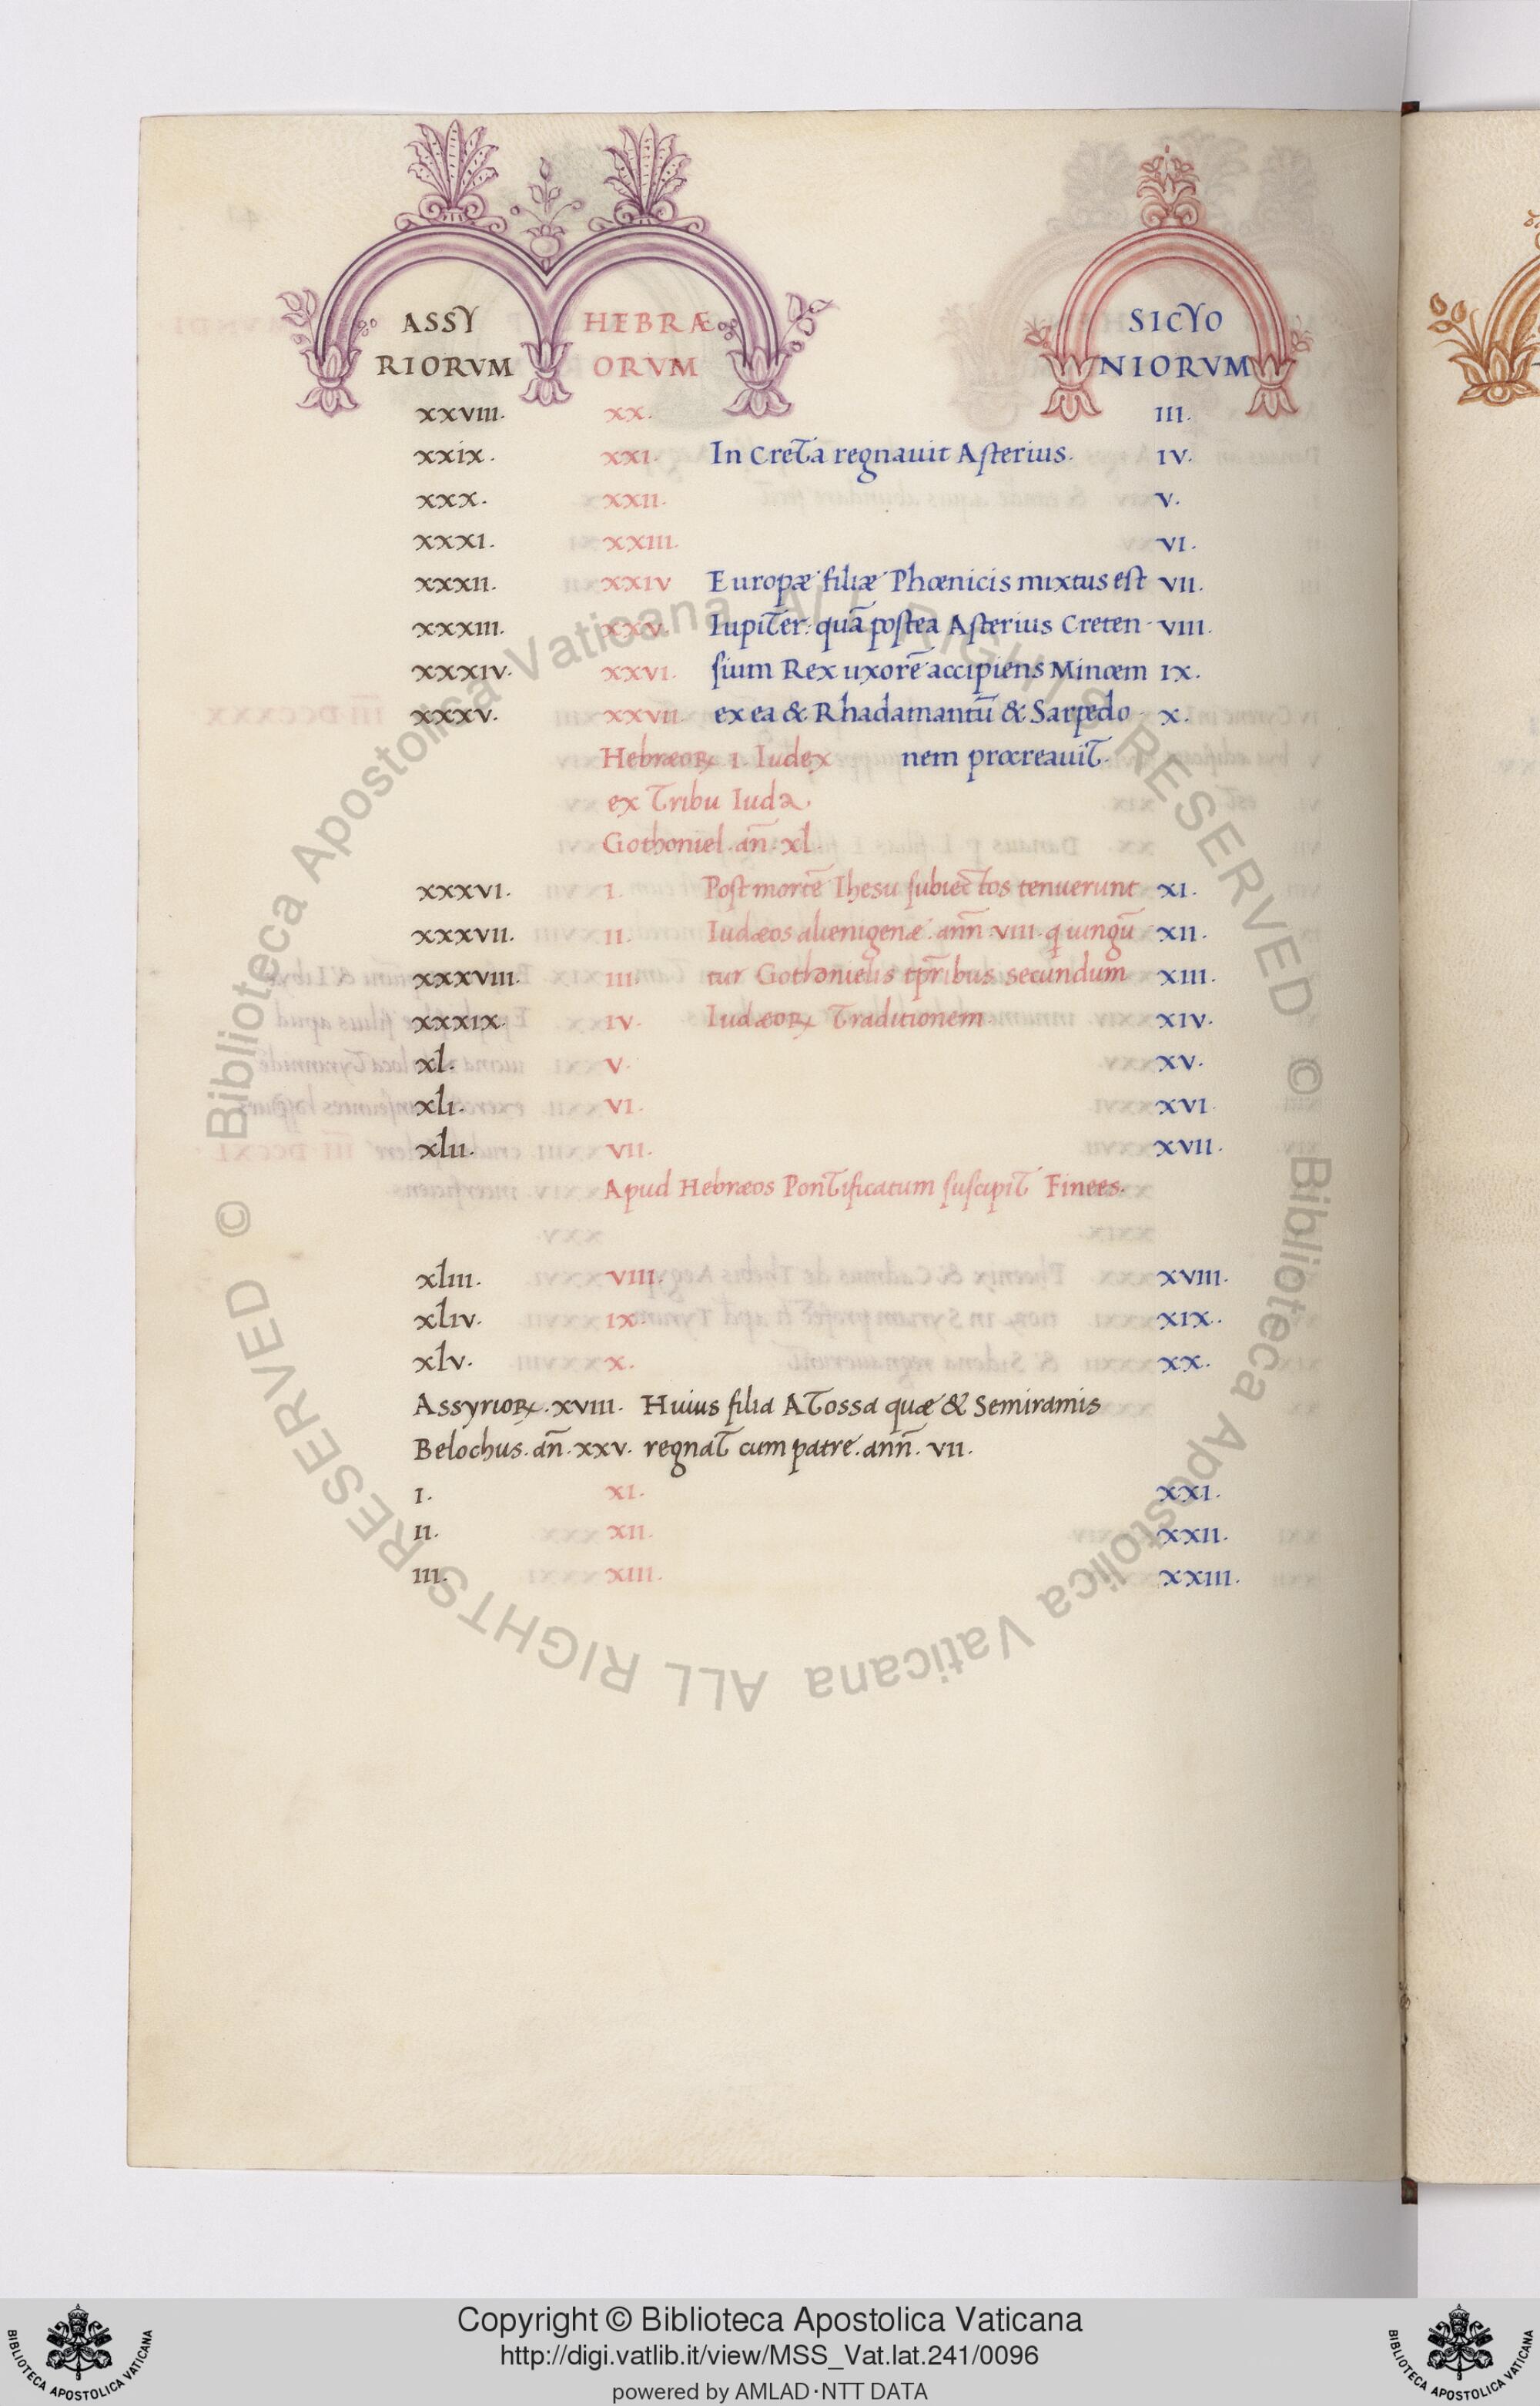 ASSY HEBRÆ SICYO
RIORVM ORVM NIORVM
xxviii. xx. iii.
xxix. xxi. In Creta regnauit Asterius. iv.
xxx. xxii. v.
xxxi. xxiii. vi.
xxxii. xxiv Europæ filiæ Phœnicis mixtus est vii.
xxxiii. xxv. Iupiter: quā postea Asterius Creten- viii.
xxxiv. xxvi. sium Rex uxorē accipiens Minœm ix.
xxxv. xxvii. ex ea & Rhadamantū & Sarpedo x.
Hebræoꝝ i. Iudex nem procreauit.
ex Tribu Iuda.
Gothoniel. añ. xl.
xxxvi. i. Post mortē Ihesu subiectos tenuerunt xi.
xxxvii. ii. Iudæos alienigenæ. anñ. viii. q iungū xii.
xxxviii. iii. tur Gothonielis tp̄ribus secundum xiii.
xxxix. iv. Iudæoꝝ Traditionem. xiv.
xl. v. xv.
xli. vi. xvi.
xlii. vii. xvii.
Apud Hebræos Pontificatum suscipit Finees.
xliii. viii. xviii.
xliv. ix. xix.
xlv. x. xx.
Assyrioꝝ. xviii. Huius filia Atossa quæ & Semiramis
Belochus. añ. xxv. regnat cum patre. anñ. vii.
i. xi. xxi.
ii. xii. xxii.
iii. xiii. xxiii.
© Biblioteca Apostolica Vaticana ALL RIGHTS RESERVED © Biblioteca Apostolica Vaticana ALL RIGHTS RESERVED
Copyright © Biblioteca Apostolica Vaticana
http://digi.vatlib.it/view/MSS_Vat.lat.241/0096
powered by AMLAD·NTT DATA
BIBLIOTECA APOSTOLICA VATICANA
BIBLIOTECA APOSTOLICA VATICANA